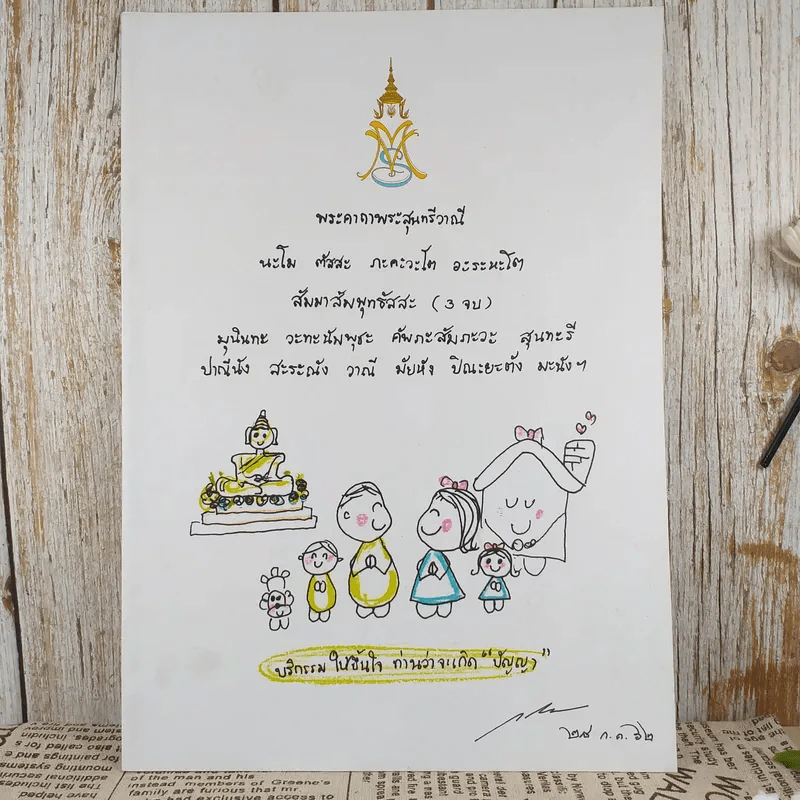 พระคาถาพระสุนทรีวาณี
นะโม ตัสสะ ภะคะวะโต อะระหะโต
สัมมาสัมพุทธัสสะ (3 จบ)
มุนินทะ วะทะนัมพุชะ คัพภะสัมภะวะ สุนทะรี
ปาณีนัง สะระณัง วาณี มัยหัง ปิณะยะตัง มะนังฯ
บริกรรมให้ขึ้นใจ ท่านว่าจะเกิด "ปัญญา"
๒๘ ก.ค. ๖๒
of the man and his
instead members of Greene's
family are furious that mr.